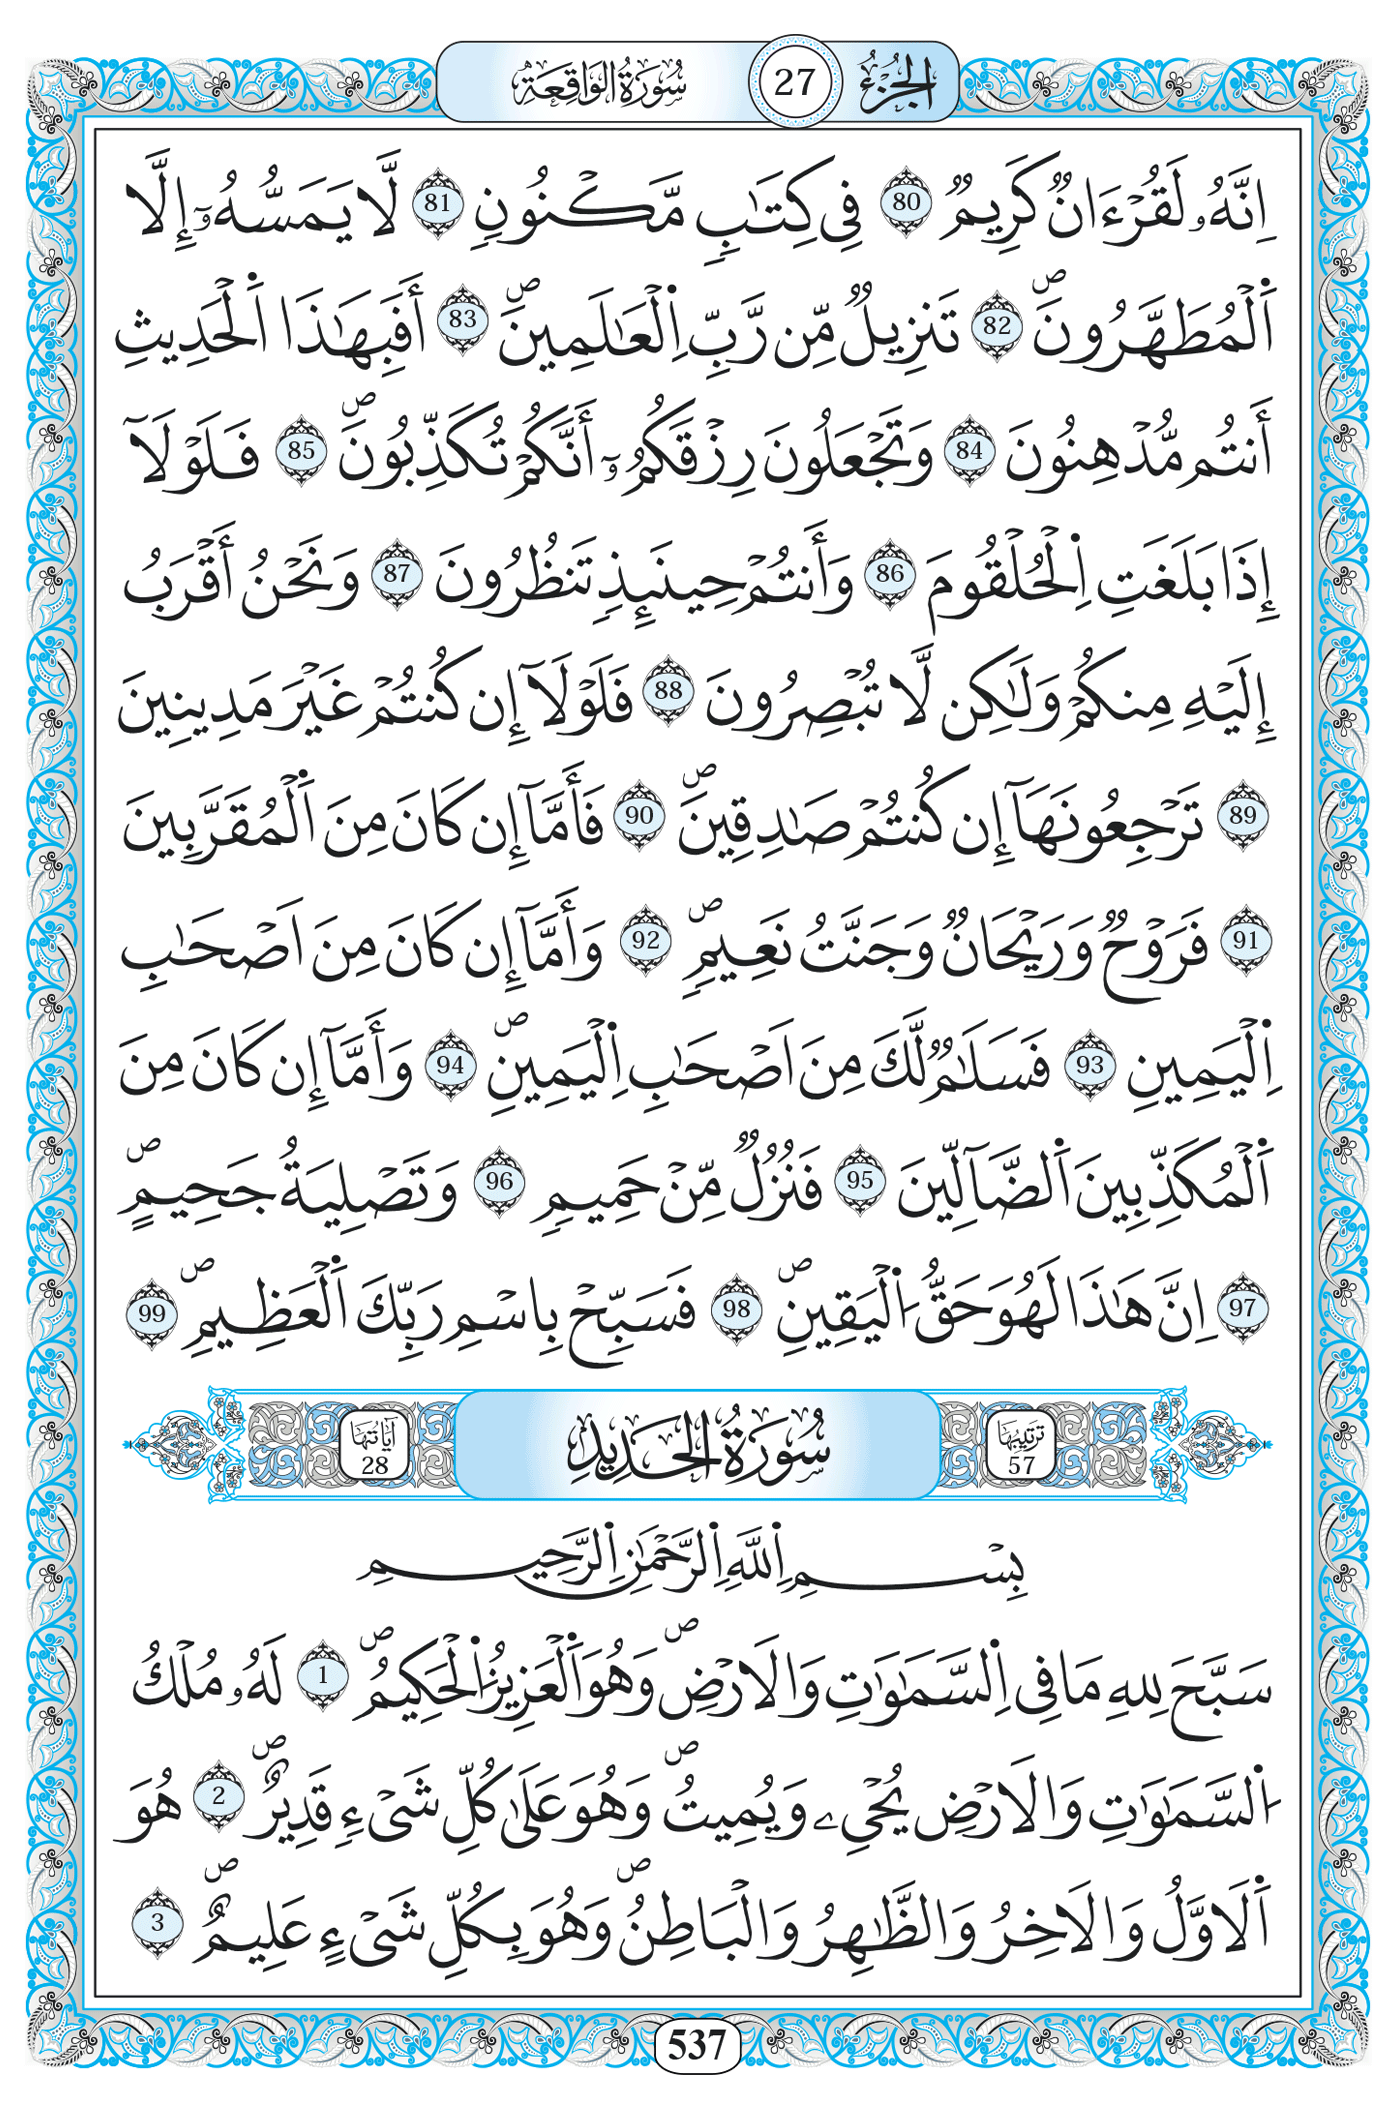 الجزء 27 سورة الواقعة
اِنَّهُۥ لَقُرْءَانٞ كَرِيمٞ 80 فِي كِتَٰبٖ مَّكْنُونٖ 81 لَّا يَمَسُّهُۥٓ إِلَّا
اَ۬لْمُطَهَّرُونَۖ 82 تَنزِيلٞ مِّن رَّبِّ اِ۬لْعَٰلَمِينَۖ 83 أَفَبِهَٰذَا اَ۬لْحَدِيثِ
أَنتُم مُّدْهِنُونَ 84 وَتَجْعَلُونَ رِزْقَكُمُۥٓ أَنَّكُمْ تُكَذِّبُونَۖ 85 فَلَوْلَآ
إِذَا بَلَغَتِ اِ۬لْحُلْقُومَ 86 وَأَنتُمْ حِينَئِذٖ تَنظُرُونَ 87 وَنَحْنُ أَقْرَبُ
إِلَيْهِ مِنكُمْ وَلَٰكِن لَّا تُبْصِرُونَ 88 فَلَوْلَآ إِن كُنتُمْ غَيْرَ مَدِينِينَ
89 تَرْجِعُونَهَآ إِن كُنتُمْ صَٰدِقِينَۖ 90 فَأَمَّآ إِن كَانَ مِنَ اَ۬لْمُقَرَّبِينَ
91 فَرَوْحٞ وَرَيْحَانٞ وَجَنَّتُ نَعِيمٖۖ 92 وَأَمَّآ إِن كَانَ مِنَ اَصْحَٰبِ
اِ۬لْيَمِينِ 93 فَسَلَٰمٞ لَّكَ مِنَ اَصْحَٰبِ اِ۬لْيَمِينِۖ 94 وَأَمَّآ إِن كَانَ مِنَ
اَ۬لْمُكَذِّبِينَ اَ۬لضَّآلِّينَ 95 فَنُزُلٞ مِّنْ حَمِيمٖ 96 وَتَصْلِيَةُ جَحِيمٍۖ
97 اِنَّ هَٰذَا لَهُوَ حَقُّ اُ۬لْيَقِينِۖ 98 فَسَبِّحْ بِاسْمِ رَبِّكَ اَ۬لْعَظِيمِۖ 99
ترتيبها 57 سورة الحديد آياتها 28
بِسْمِ اِ۬للَّهِ اِ۬لرَّحْمَٰنِ اِ۬لرَّحِيمِ
سَبَّحَ لِلهِ مَا فِي اِ۬لسَّمَٰوَٰتِ وَالَارْضِۖ وَهُوَ اَ۬لْعَزِيزُ اُ۬لْحَكِيمُۖ 1 لَهُۥ مُلْكُ
اُ۬لسَّمَٰوَٰتِ وَالَارْضِ يُحْيِۦ وَيُمِيتُۖ وَهُوَ عَلَىٰ كُلِّ شَيْءٖ قَدِيرٌۖ 2 هُوَ
اَ۬لَاوَّلُ وَالَاخِرُ وَالظَّٰهِرُ وَالْبَاطِنُۖ وَهُوَ بِكُلِّ شَيْءٍ عَلِيمٌۖ 3
537